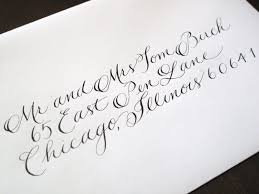 Mr and Mrs Tom Buch
65 East Pen Lane
Chicago, Illinois 60641